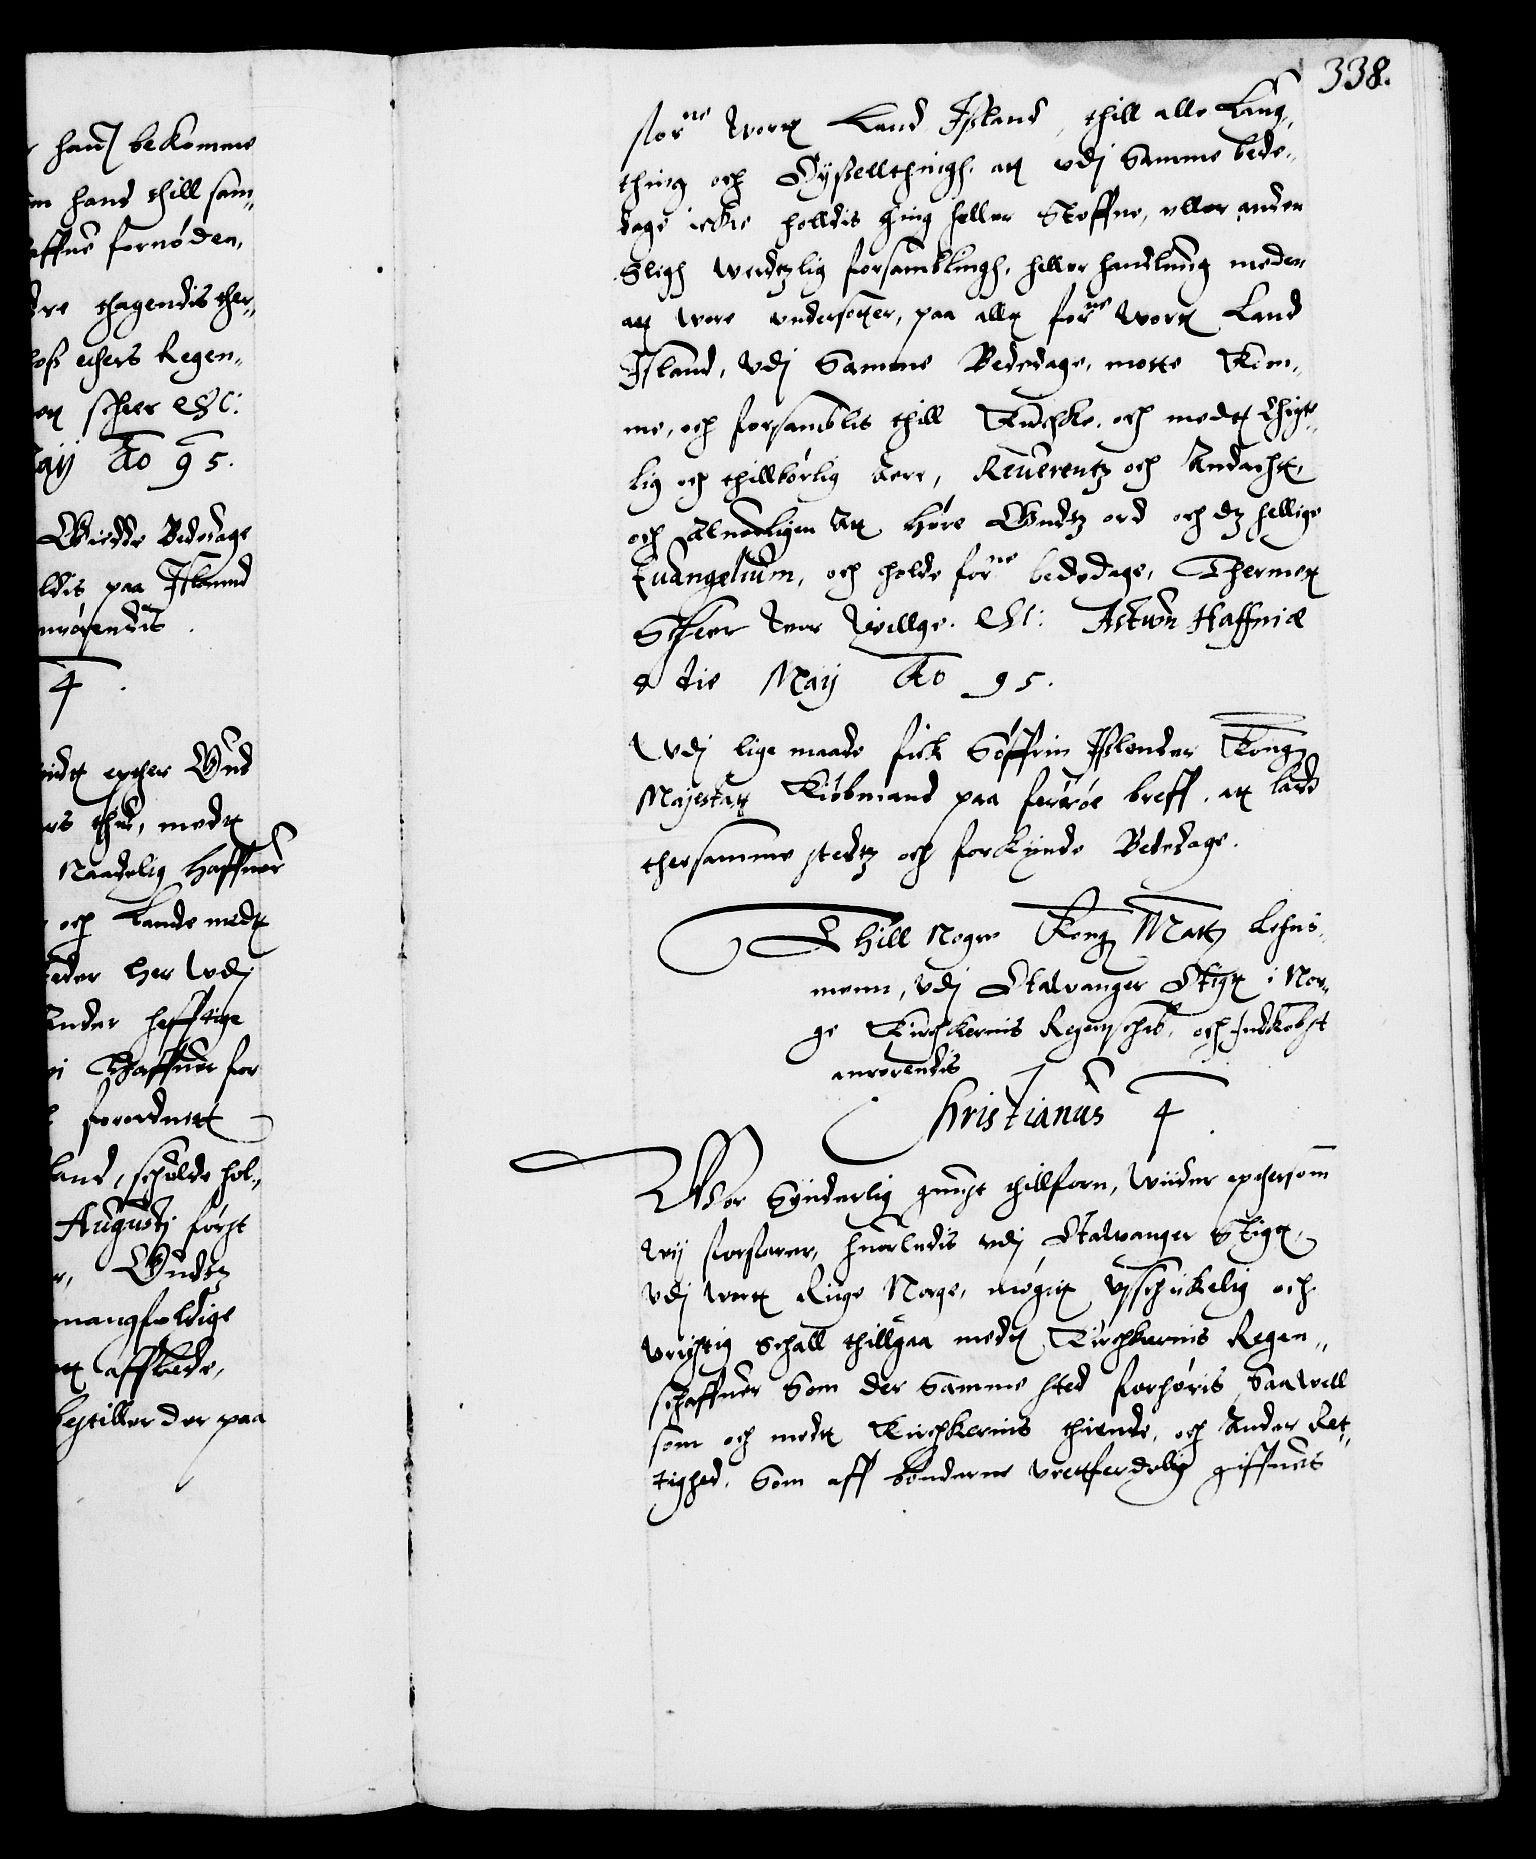 338.
hanſ bekomme
hand thill sam„
affue fornöden,
thagendis ther„
echers Regen„
scheer Etc:
Maij Ao 95.
Bededage
ldis paa Island
anrörendis.
4
epther Gud
thid, medt
Naadelig haffuer
och Lande medt
her Vdj
Ander hefftige
haffuer for
forordnett
land, schulde hol„
Augustj först
Gudtz
mangfoldige
afflede,
bestiller der paa
forne wortt Land Jsland, thill alle Lang„
thing och Syßellthingh, att vdj Samme bede„
dage icke holldis thing heller Steffne, eller anden
Sligh werdtzlig forsamblingh, heller handlung meden
att wore vndersotter, paa allt forne wortt Land
Jsland, Vdj Samme Bededage, motte Kom„
me, och forsamblis thill Kirchke, och medt thigt„
lig och thillbörlig Aere, Reuerentz och Andacht,
och alvorligen Att Höre Gudtz ord och dtz hellige
Euangelium, och holde forne bededage, Thermett
Scheer Vor Willge. Etc: Actum Haffniæ
9 die Maij Ao 95.
Vdj lige maade fick Söffrin Jslender Kong
Majestatz Kiöbmand paa Ferööe breff, att lade
thersamme stedtz och forkynde Bededage.
Thill Nogre Kong Mattz Lehns„
menn, vdj Stavanger Stigtt i Nor„
ge Kirchkernis Regenschab, och Indkobst
anrorendis
Christianus 4
Wor Synderlig gunst thillforn, Wiider epthersom
wij forfarer, huorledis vdj Stavanger Stigtt,
vdj wortt Rige Norge, nögett vschickelig och
vrigtig Schall thillgaa medt Kirchkernis Regen„
schaffuer Som der Samme sted forhöris, Saawell
som och medt Kirchkernis thiende, och Anden Ret„
tighed, Som aff bönderne vrettferdelig giffues